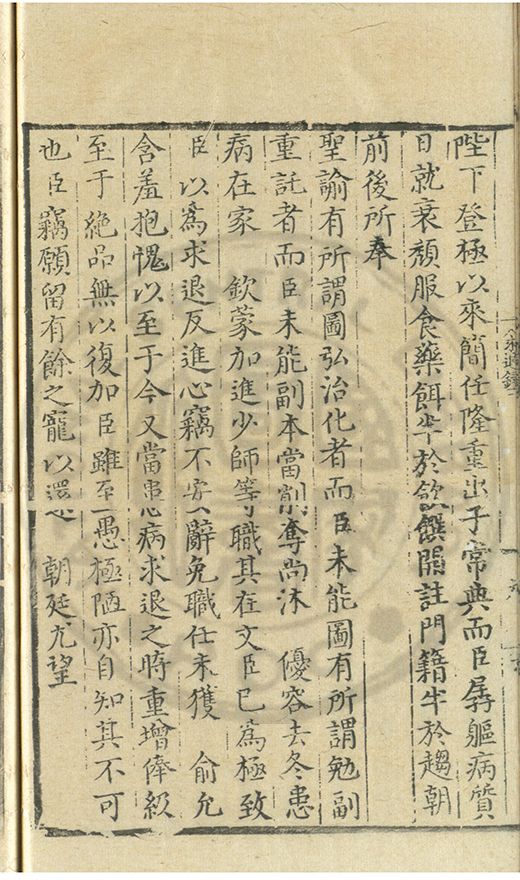 陛下登極以來簡任隆重出于常典而臣孱軀病質
日就衰頹服食藥餌半於飲饌開註門籍半於趨朝
前後所奉
聖諭有所謂圖弘治化者而臣未能圖有所謂勉副
重託者而臣未能副本當削奪尚沐　優容去冬患
病在家　欽蒙加進少師等職其在文臣已為極致
臣以為求退反進心竊不安辭免職任未獲　俞允
含羞抱愧以至于今又當患病求退之時重增俸級
至于絕品無以復加臣雖至愚極陋亦自知其不可
也臣竊願留有餘之寵以還　朝廷尤望